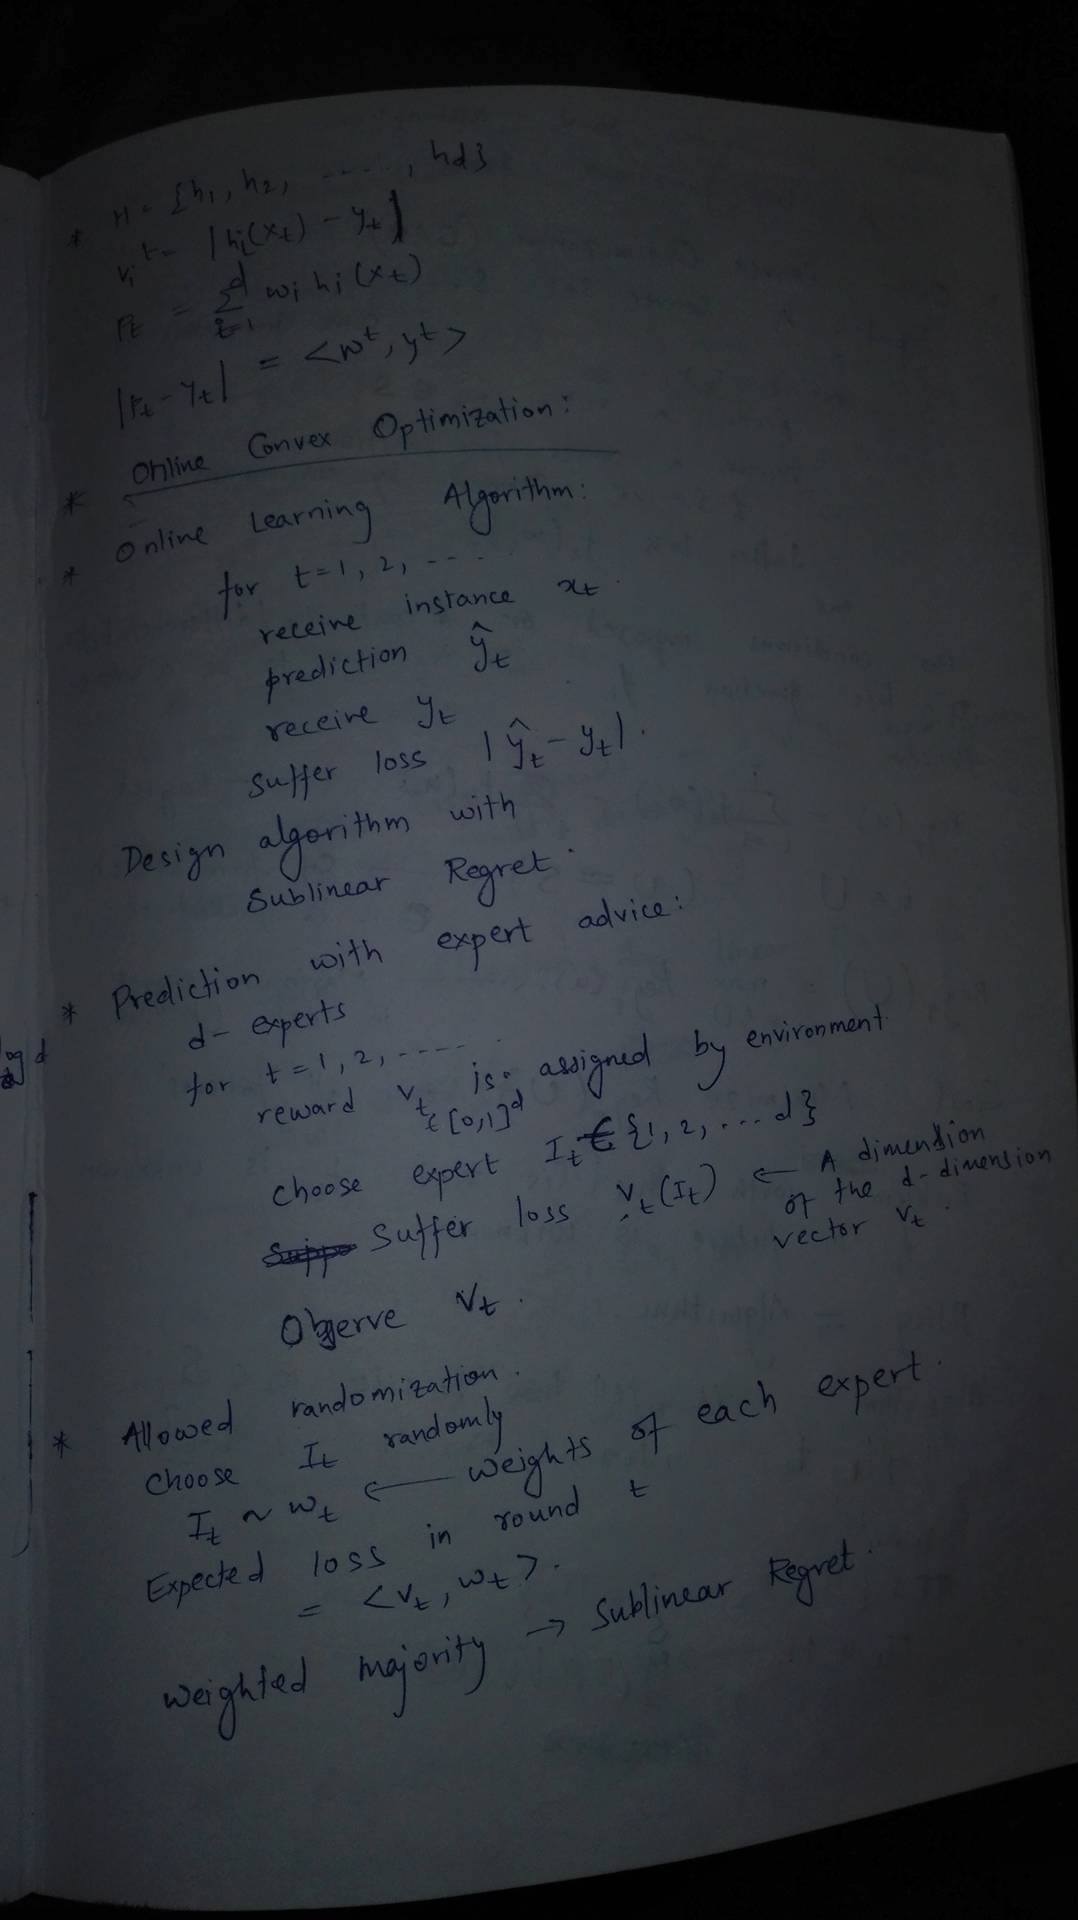 * H = {h₁, h₂, ....., hd}
vᵢᵗ = |hᵢ(xₜ) - yₜ|
Pₜ = Σᵢ₌₁ᵈ wᵢ hᵢ(xₜ)
|Pₜ - yₜ| = <wᵗ, yᵗ>
* Online Convex Optimization:
* Online Learning Algorithm:
for t=1, 2, ....
receive instance xₜ.
prediction ŷₜ
receive yₜ
Suffer loss |ŷₜ - yₜ|.
Design algorithm with
Sublinear Regret.
* Prediction with expert advice:
d- experts
for t = 1, 2, ......
reward vₜ is assigned by environment.
∈ [0,1]ᵈ
choose expert Iₜ ∈ {1, 2, ... d}
Suffer loss vₜ(Iₜ) ← A dimension
of the d-dimension
vector vₜ.
Observe vₜ.
* Allowed randomization.
choose Iₜ randomly
Iₜ ~ wₜ ← weights of each expert.
Expected loss in round t
= <vₜ, wₜ>.
weighted majority → Sublinear Regret.